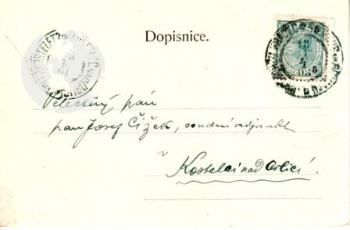 Dopisnice.
Velectěný pán
pan Josef Čížek, soudní adjunkt
Kostelci nad Orlicí!